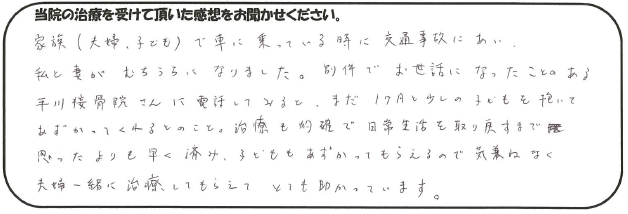 当院の治療を受けて頂いた感想をお聞かせください。
家族(夫婦、子ども)で車に乗っている時に交通事故にあい、
私と妻がむちうちになりました。別件でお世話になったことのある
平川接骨院さんに電話してみると、まだ1ケ月と少しの子どもを抱いて
あずかってくれるとのこと。治療も的確で日常生活を取り戻すまで
思ったよりも早く済み、子どももあずかってもらえるので気兼ねなく
夫婦一緒に治療してもらえてとても助かっています。